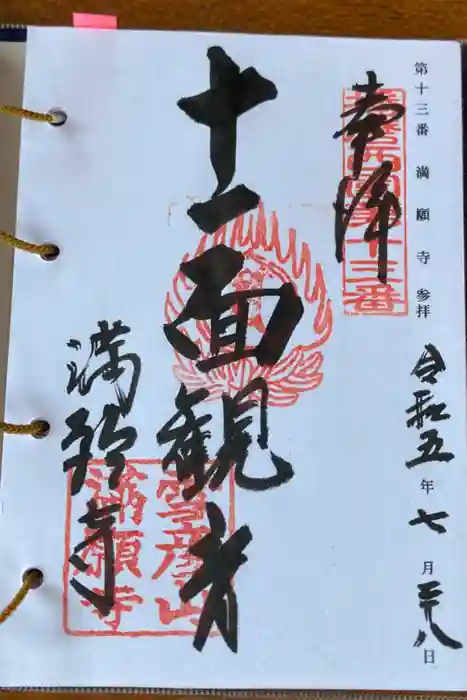 第十三番 満願寺 参拝 令和五年七月二十八日
奉拝
播磨西國第十三番
十一面観音
満願寺
雪彦山
滿願寺